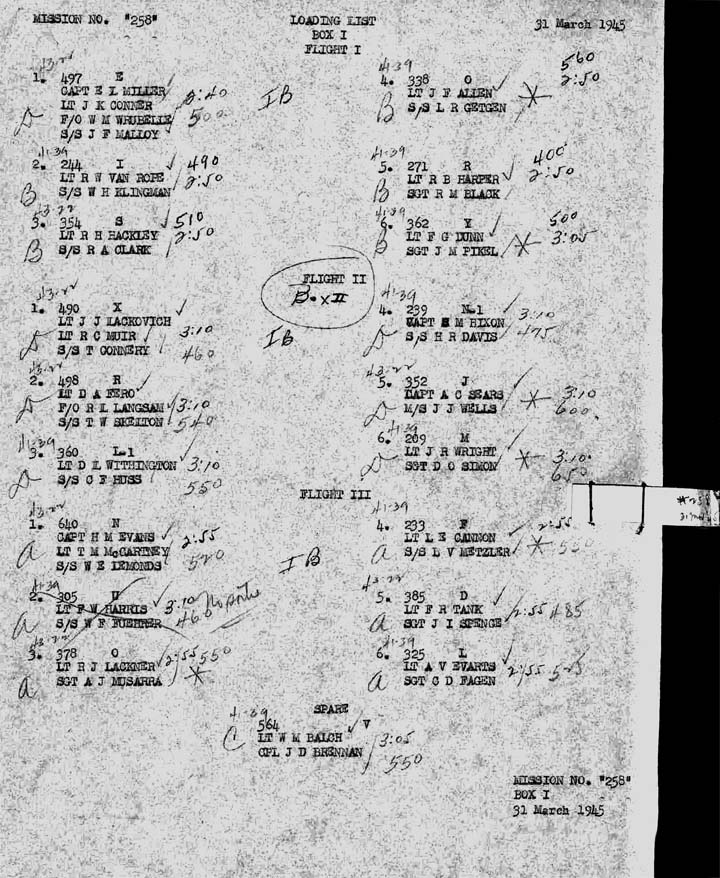 MISSION NO. "258"
LOADING LIST
31 March 1945
BOX I
FLIGHT I
43-22
1. 497 E
CAPT E L MILLER
LT J K CONNER
F/O W M WRUBELLE
S/S J F MALLOY
3:40
500
IB
41-39
4. 338 O
LT J F ALLEN
S/S L R GETGEN
B
560
2:50
41-39
2. 244 I
LT R W VAN ROPE
S/S W H KLINGMAN
B
490
2:50
41-39
5. 271 R
LT R B HARPER
SGT R M BLACK
B
400
2:50
43-22
3. 354 S
LT R H HACKLEY
S/S R A CLARK
B
510
2:50
41-39
6. 362 Y
LT F G DUNN
SGT J M PIKEL
B
500
3:05
FLIGHT II
Box II
43-22
1. 490 X
LT J J LACKOVICH
LT R C MUIR
S/S T CONNERY
3:10
460
IB
41-39
4. 239 N-1
CAPT H M HIXON
S/S H R DAVIS
3:10
475
43-22
2. 498 R
LT D A FERO
F/O R L LANGSAM
S/S T W SKELTON
3:10
540
43-22
5. 352 J
CAPT A C SEARS
M/S J J WELLS
3:10
600
41-39
3. 360 L-1
LT D L WITHINGTON
S/S C F HUSS
3:10
550
41-39
6. 209 M
LT J R WRIGHT
SGT D O SIMON
3:10
650
FLIGHT III
43-22
1. 640 N
CAPT H M EVANS
LT T M McCARTNEY
S/S W E LEMONDS
a
2:55
520
IB
41-39
4. 233 F
LT L E CANNON
S/S L V METZLER
a
2:55
550
41-39
2. 305 U
LT F W HARRIS
S/S W F FUEHRER
a
3:10
460
No sortie
43-22
5. 385 D
LT F R TANK
SGT J I SPENCE
a
2:55 485
43-22
3. 378 O
LT R J LACKNER
SGT A J MUSARRA
a
2:55 550
41-39
6. 325 L
LT A V EVARTS
SGT C D FAGEN
a
2:55 525
SPARE
41-39
564 V
LT W M BALCH
CPL J D BRENNAN
C
3:05
550
MISSION NO. "258"
BOX I
31 March 1945